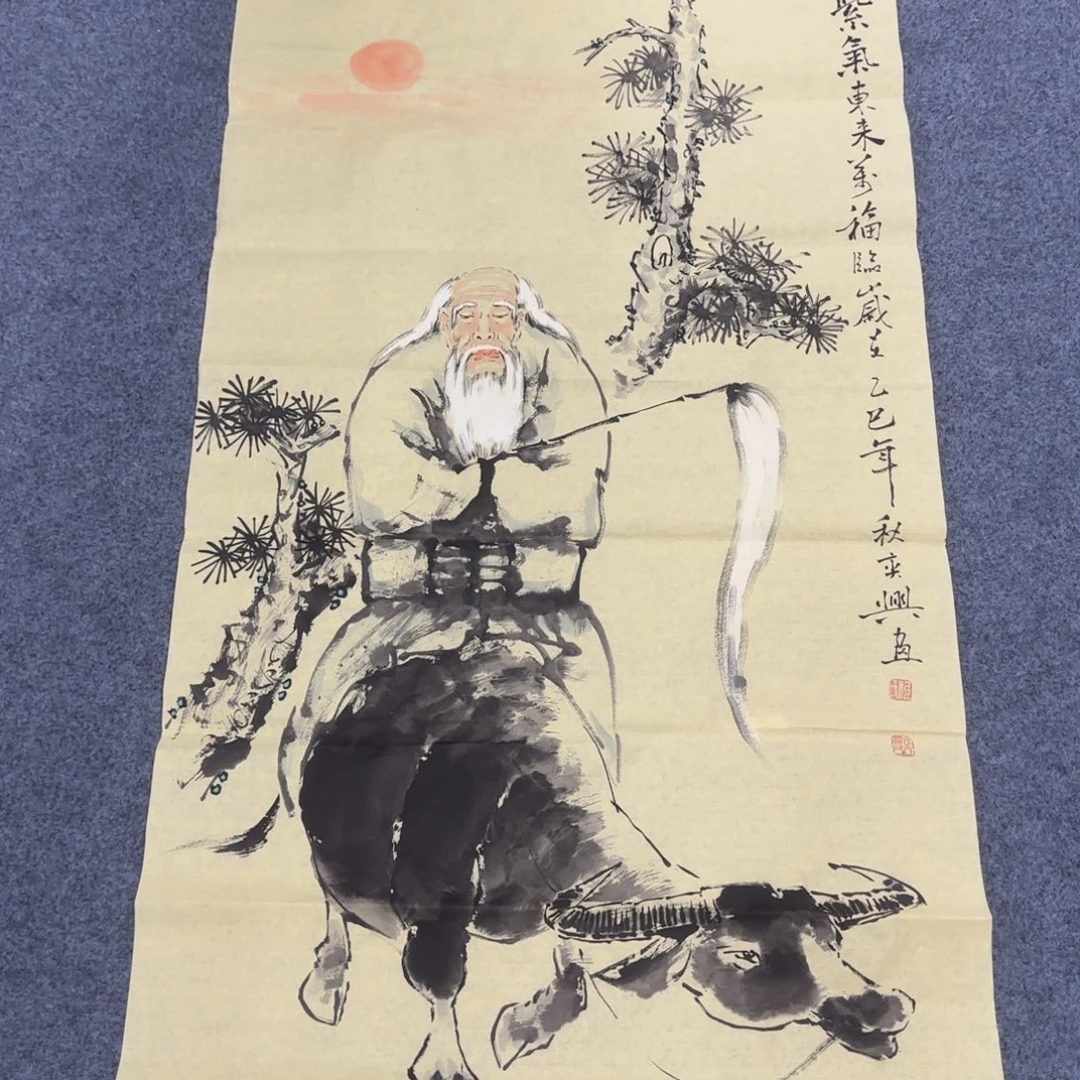 紫氣東来萬福臨歲在乙巳年秋京興畫